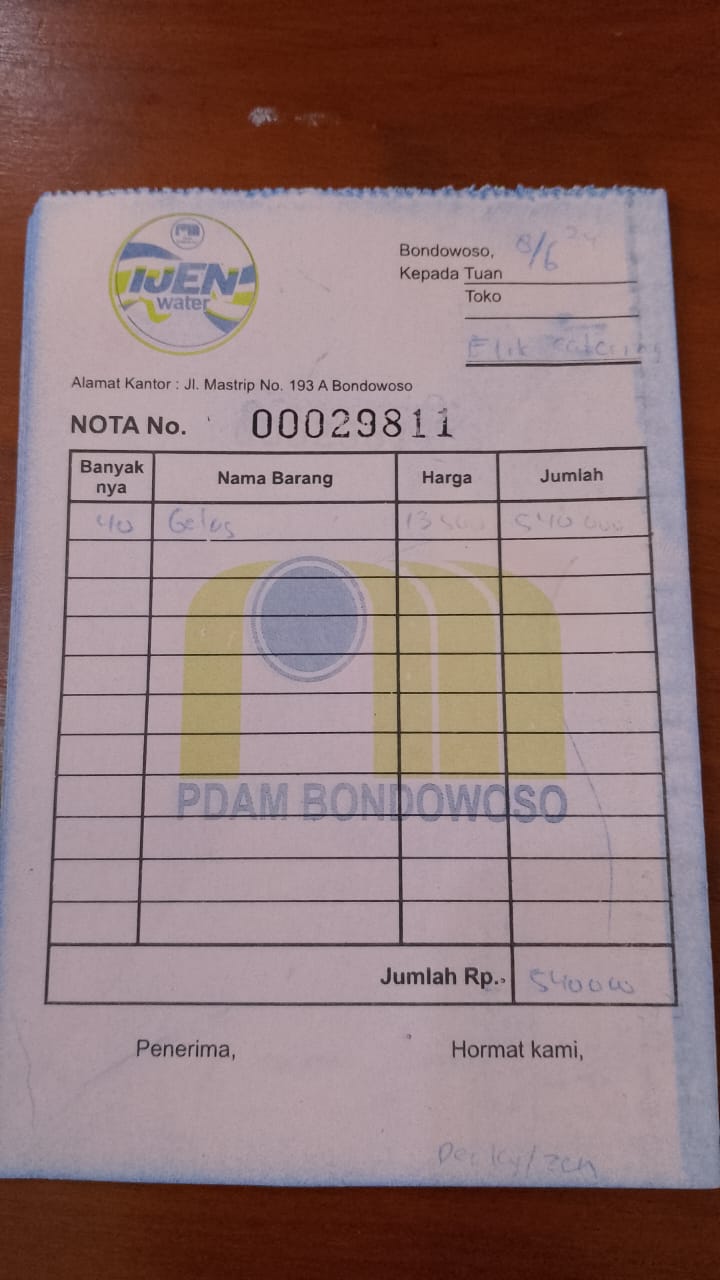 IJEN
water
Bondowoso, 8/6 24
Kepada Tuan
Toko
Elik catering
Alamat Kantor : Jl. Mastrip No. 193 A Bondowoso
NOTA No. 00029811
Banyak nya Nama Barang Harga Jumlah
40 Gelas 13 500 540 000
PDAM BONDOWOSO
Jumlah Rp. 540 000
Penerima, Hormat kami,